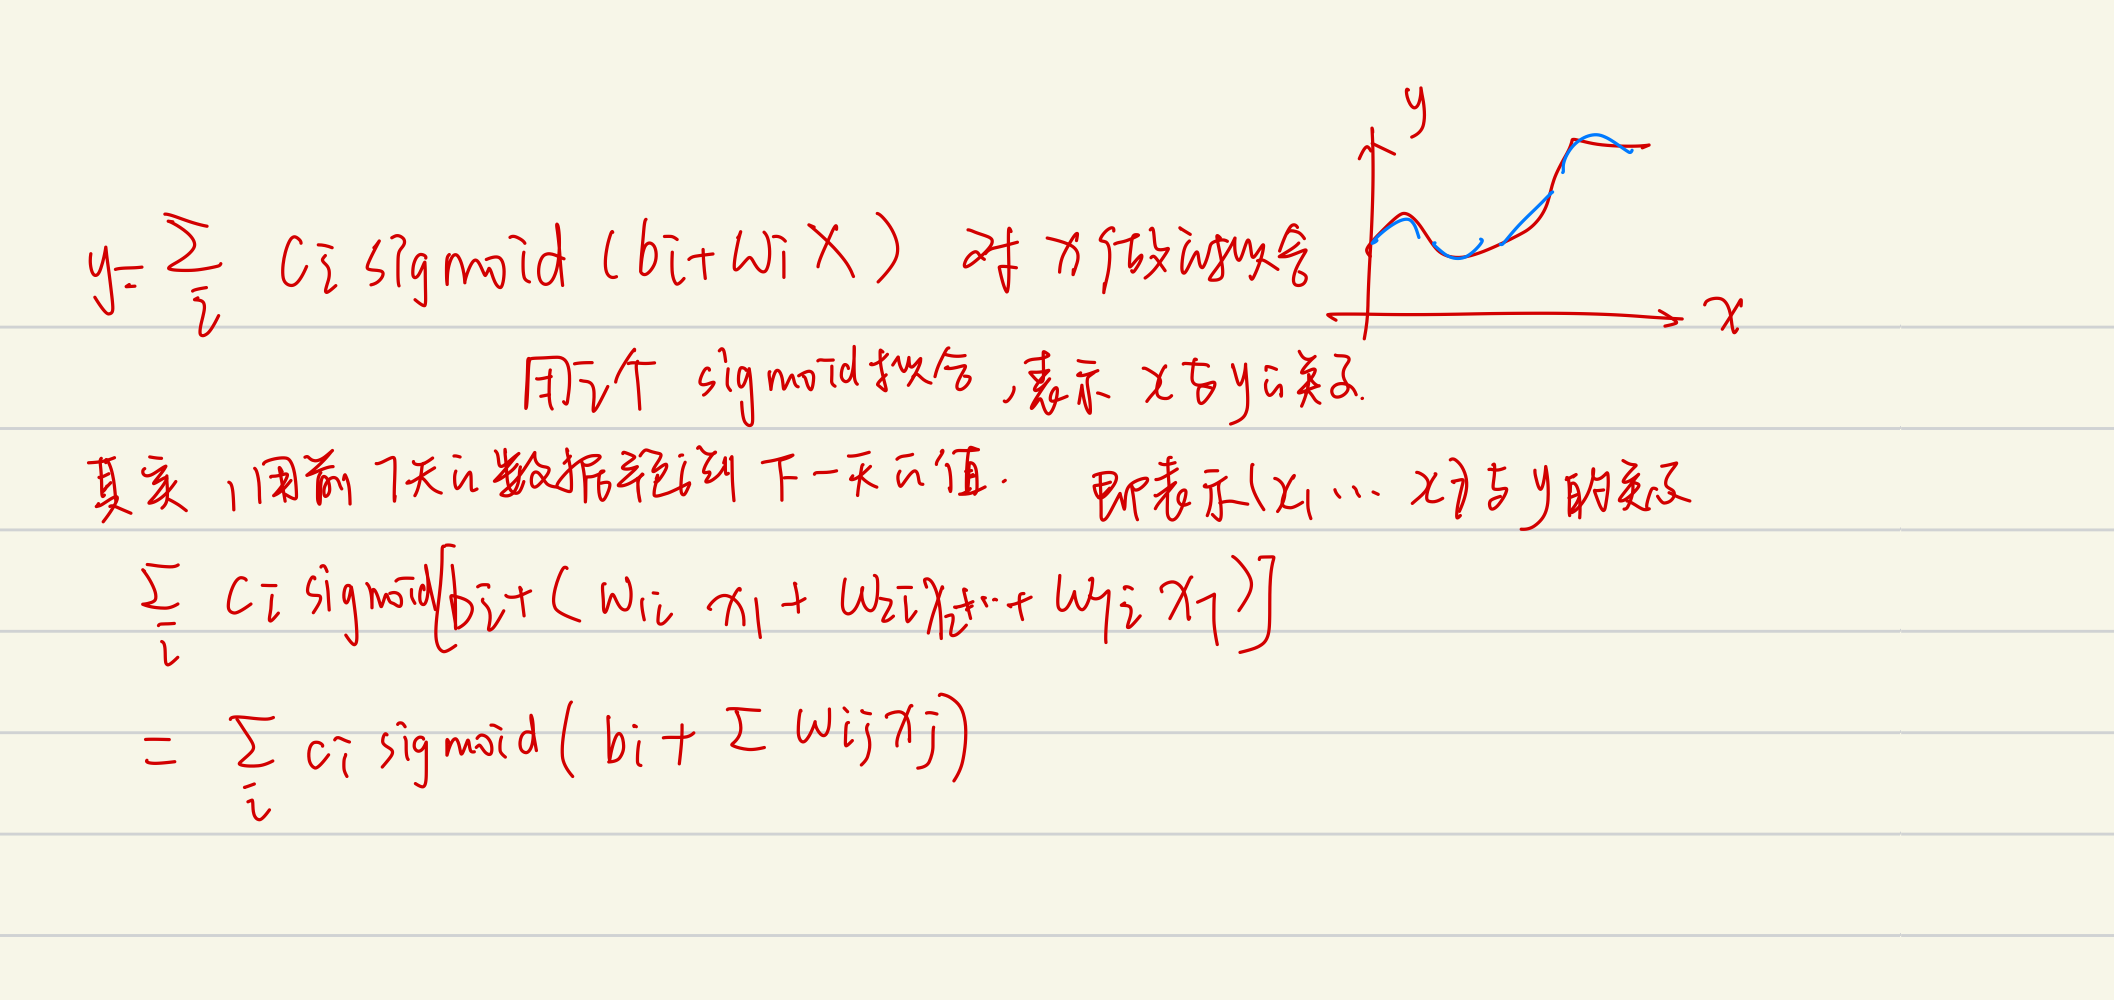 y
y = Σ ci sigmoid (bi + wi x) 对 x 所做的拟合
i
x
用 i 个 sigmoid 拟合, 表示 x 与 y 的关系.
其实, 用前 7天的数据 得到 下一天的值. 即表示 (x1 ... x7) 与 y 的关系
Σ ci sigmoid [bi + (w1i x1 + w2i x2 + ... + w7i x7)]
i
= Σ ci sigmoid (bi + Σ wij xj)
i